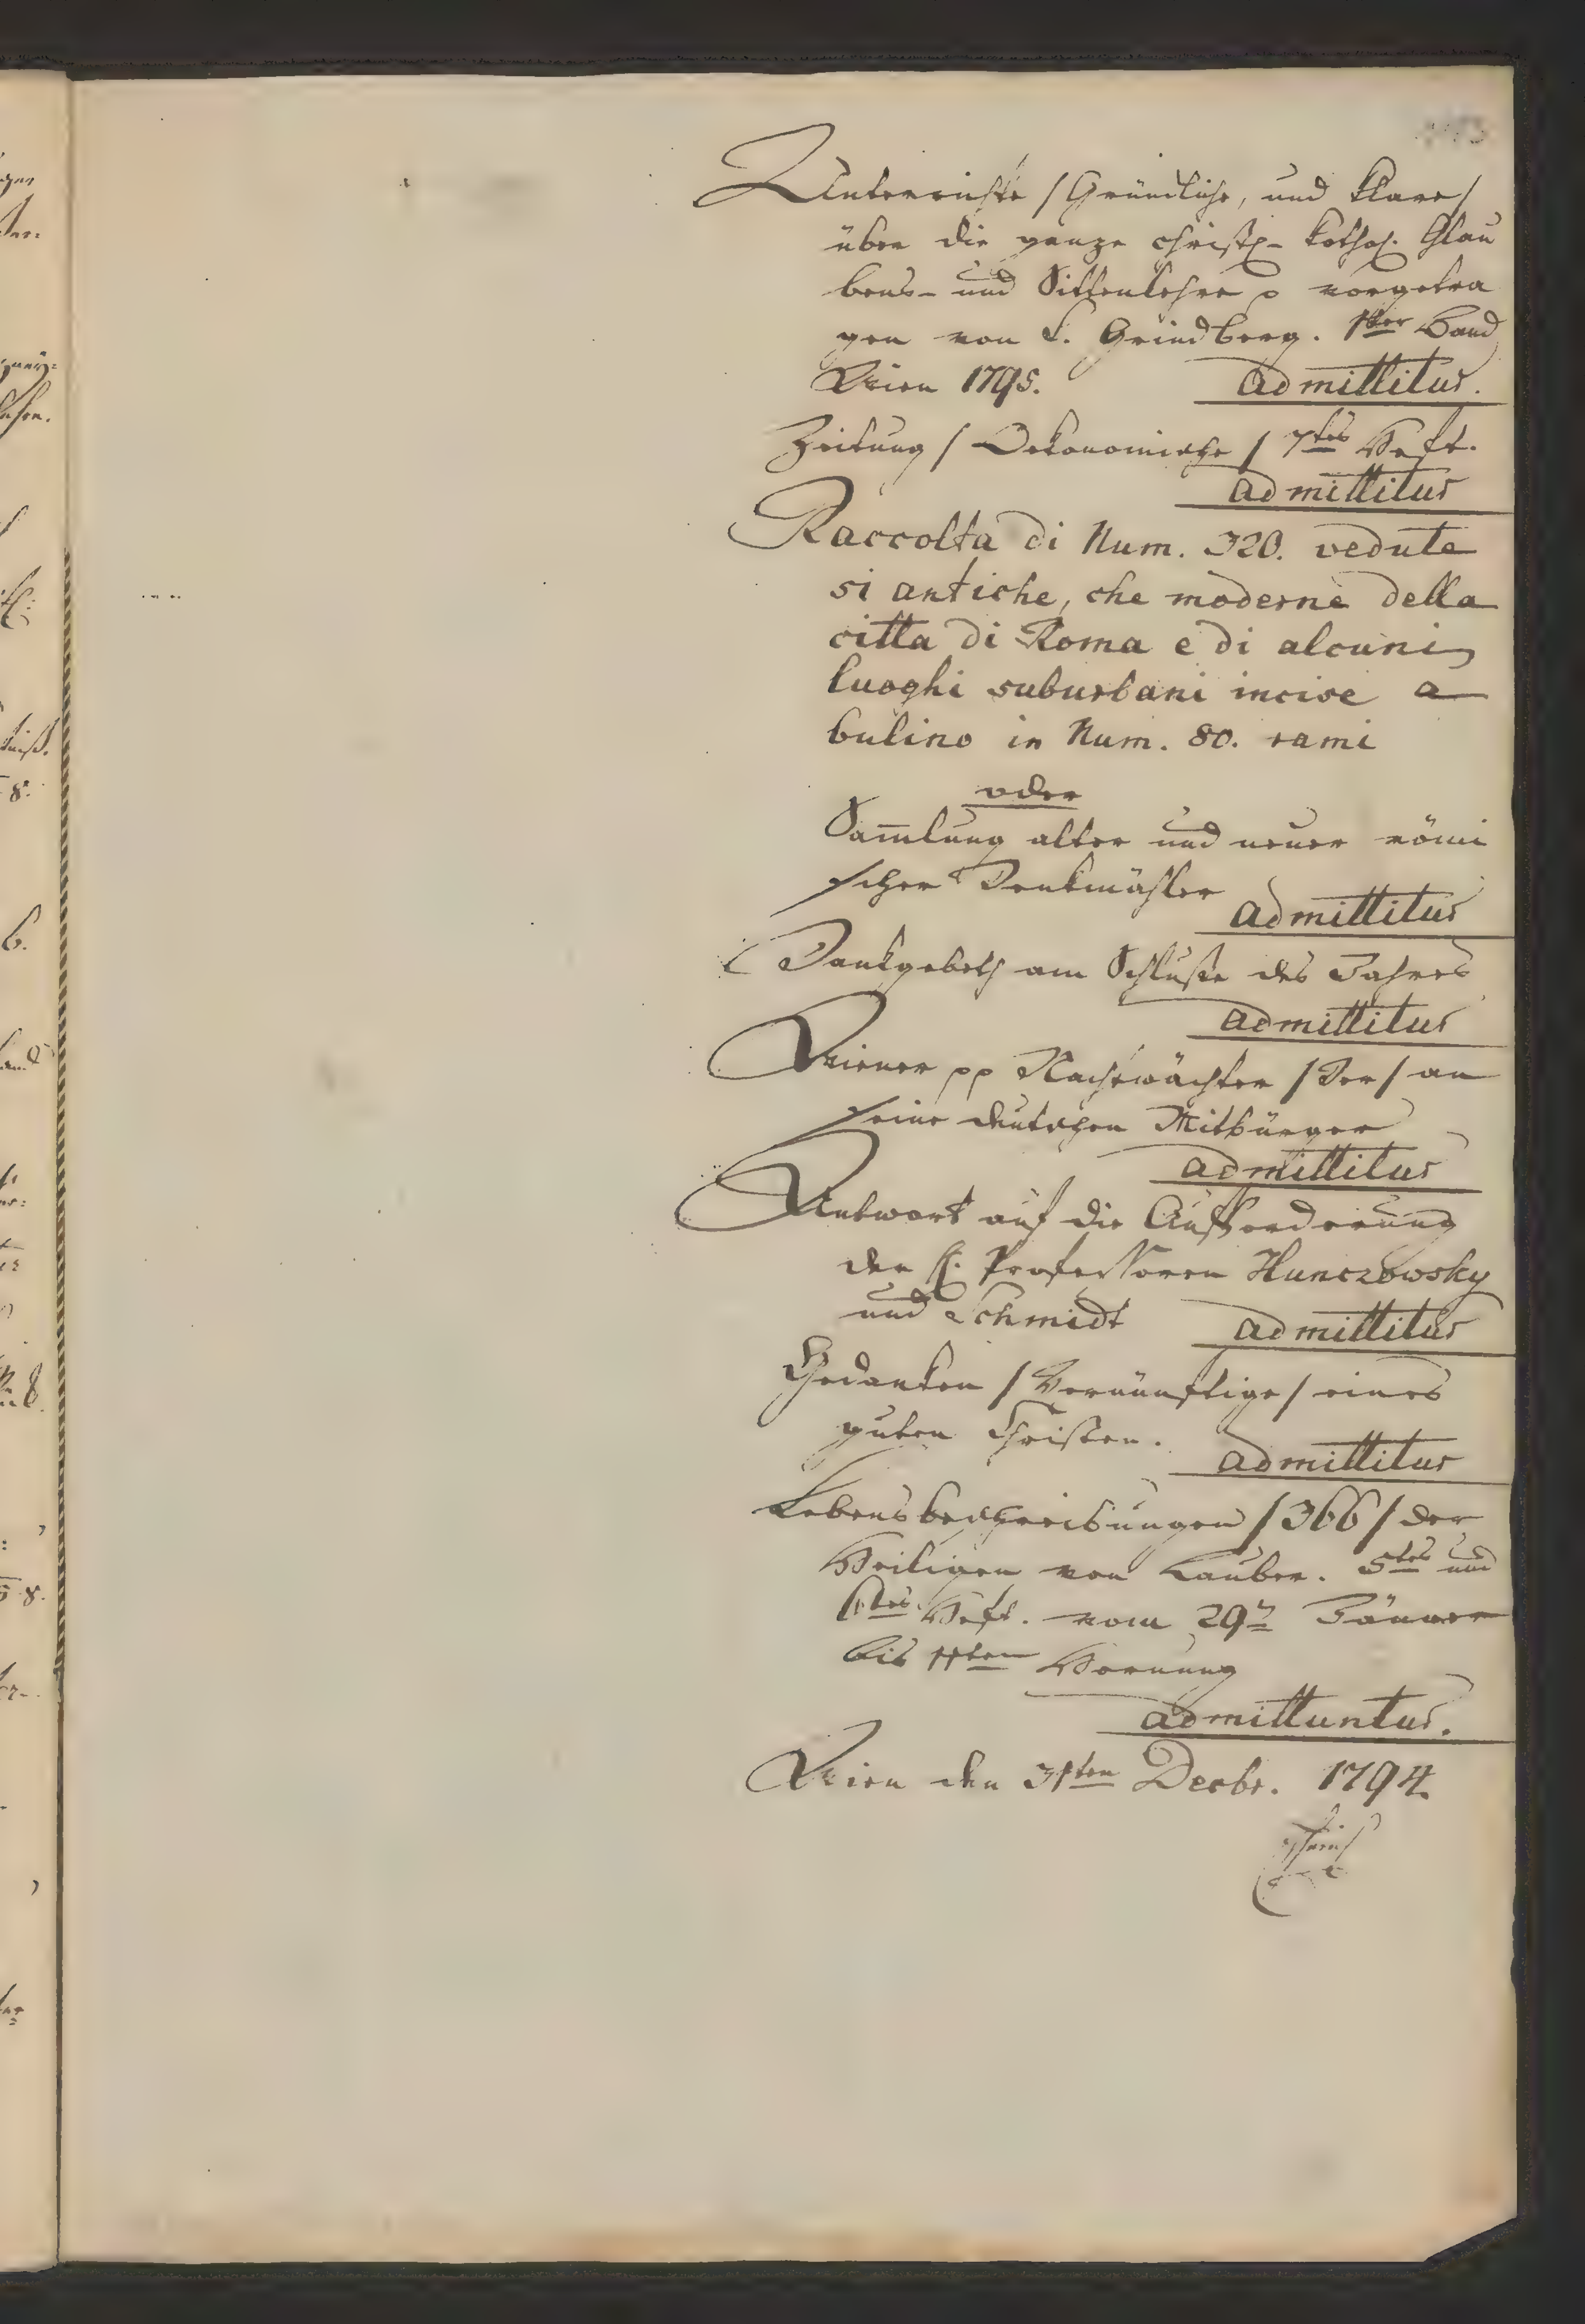 Unterrichte /Gründliche, und klare/
über die ganze christl- kathol. Glau
bens- und Sittenlehre p vorgetra
gen von L. Grundberg. 1ter Band
Wien 1795. admittitur.
Zeitung /Oekonomische/ 7tes Heft.
admittitur
Raccolta di Num. 320. vedute
si antiche, che moderne della
citta di Roma e di alcuni
luoghi suburbani incise a
bulino in Num. 80. rami
oder
Sam̅lung alter und neuer römi
scher Denkmähler
admittitur
Dankgebeth am Schluße des Jahres
admittitur
Wiener pp Nachtwächter /Der/ an
seine deutschen Mitbürger
admittitur
Antwort auf die Aufforderung
der H. Professoren Hunczowsky
und Schmidt admittitur
Gedanken /Vernünftige/ eines
guten Christen.
admittitur
Lebensbeschreibungen /366/ der
Heiligen von Lauber. 5tes und
6tes Heft. vom 29n Jänner
bis 11ten Hornung
admittuntur.
Wien den 31ten Decbr. 1794.